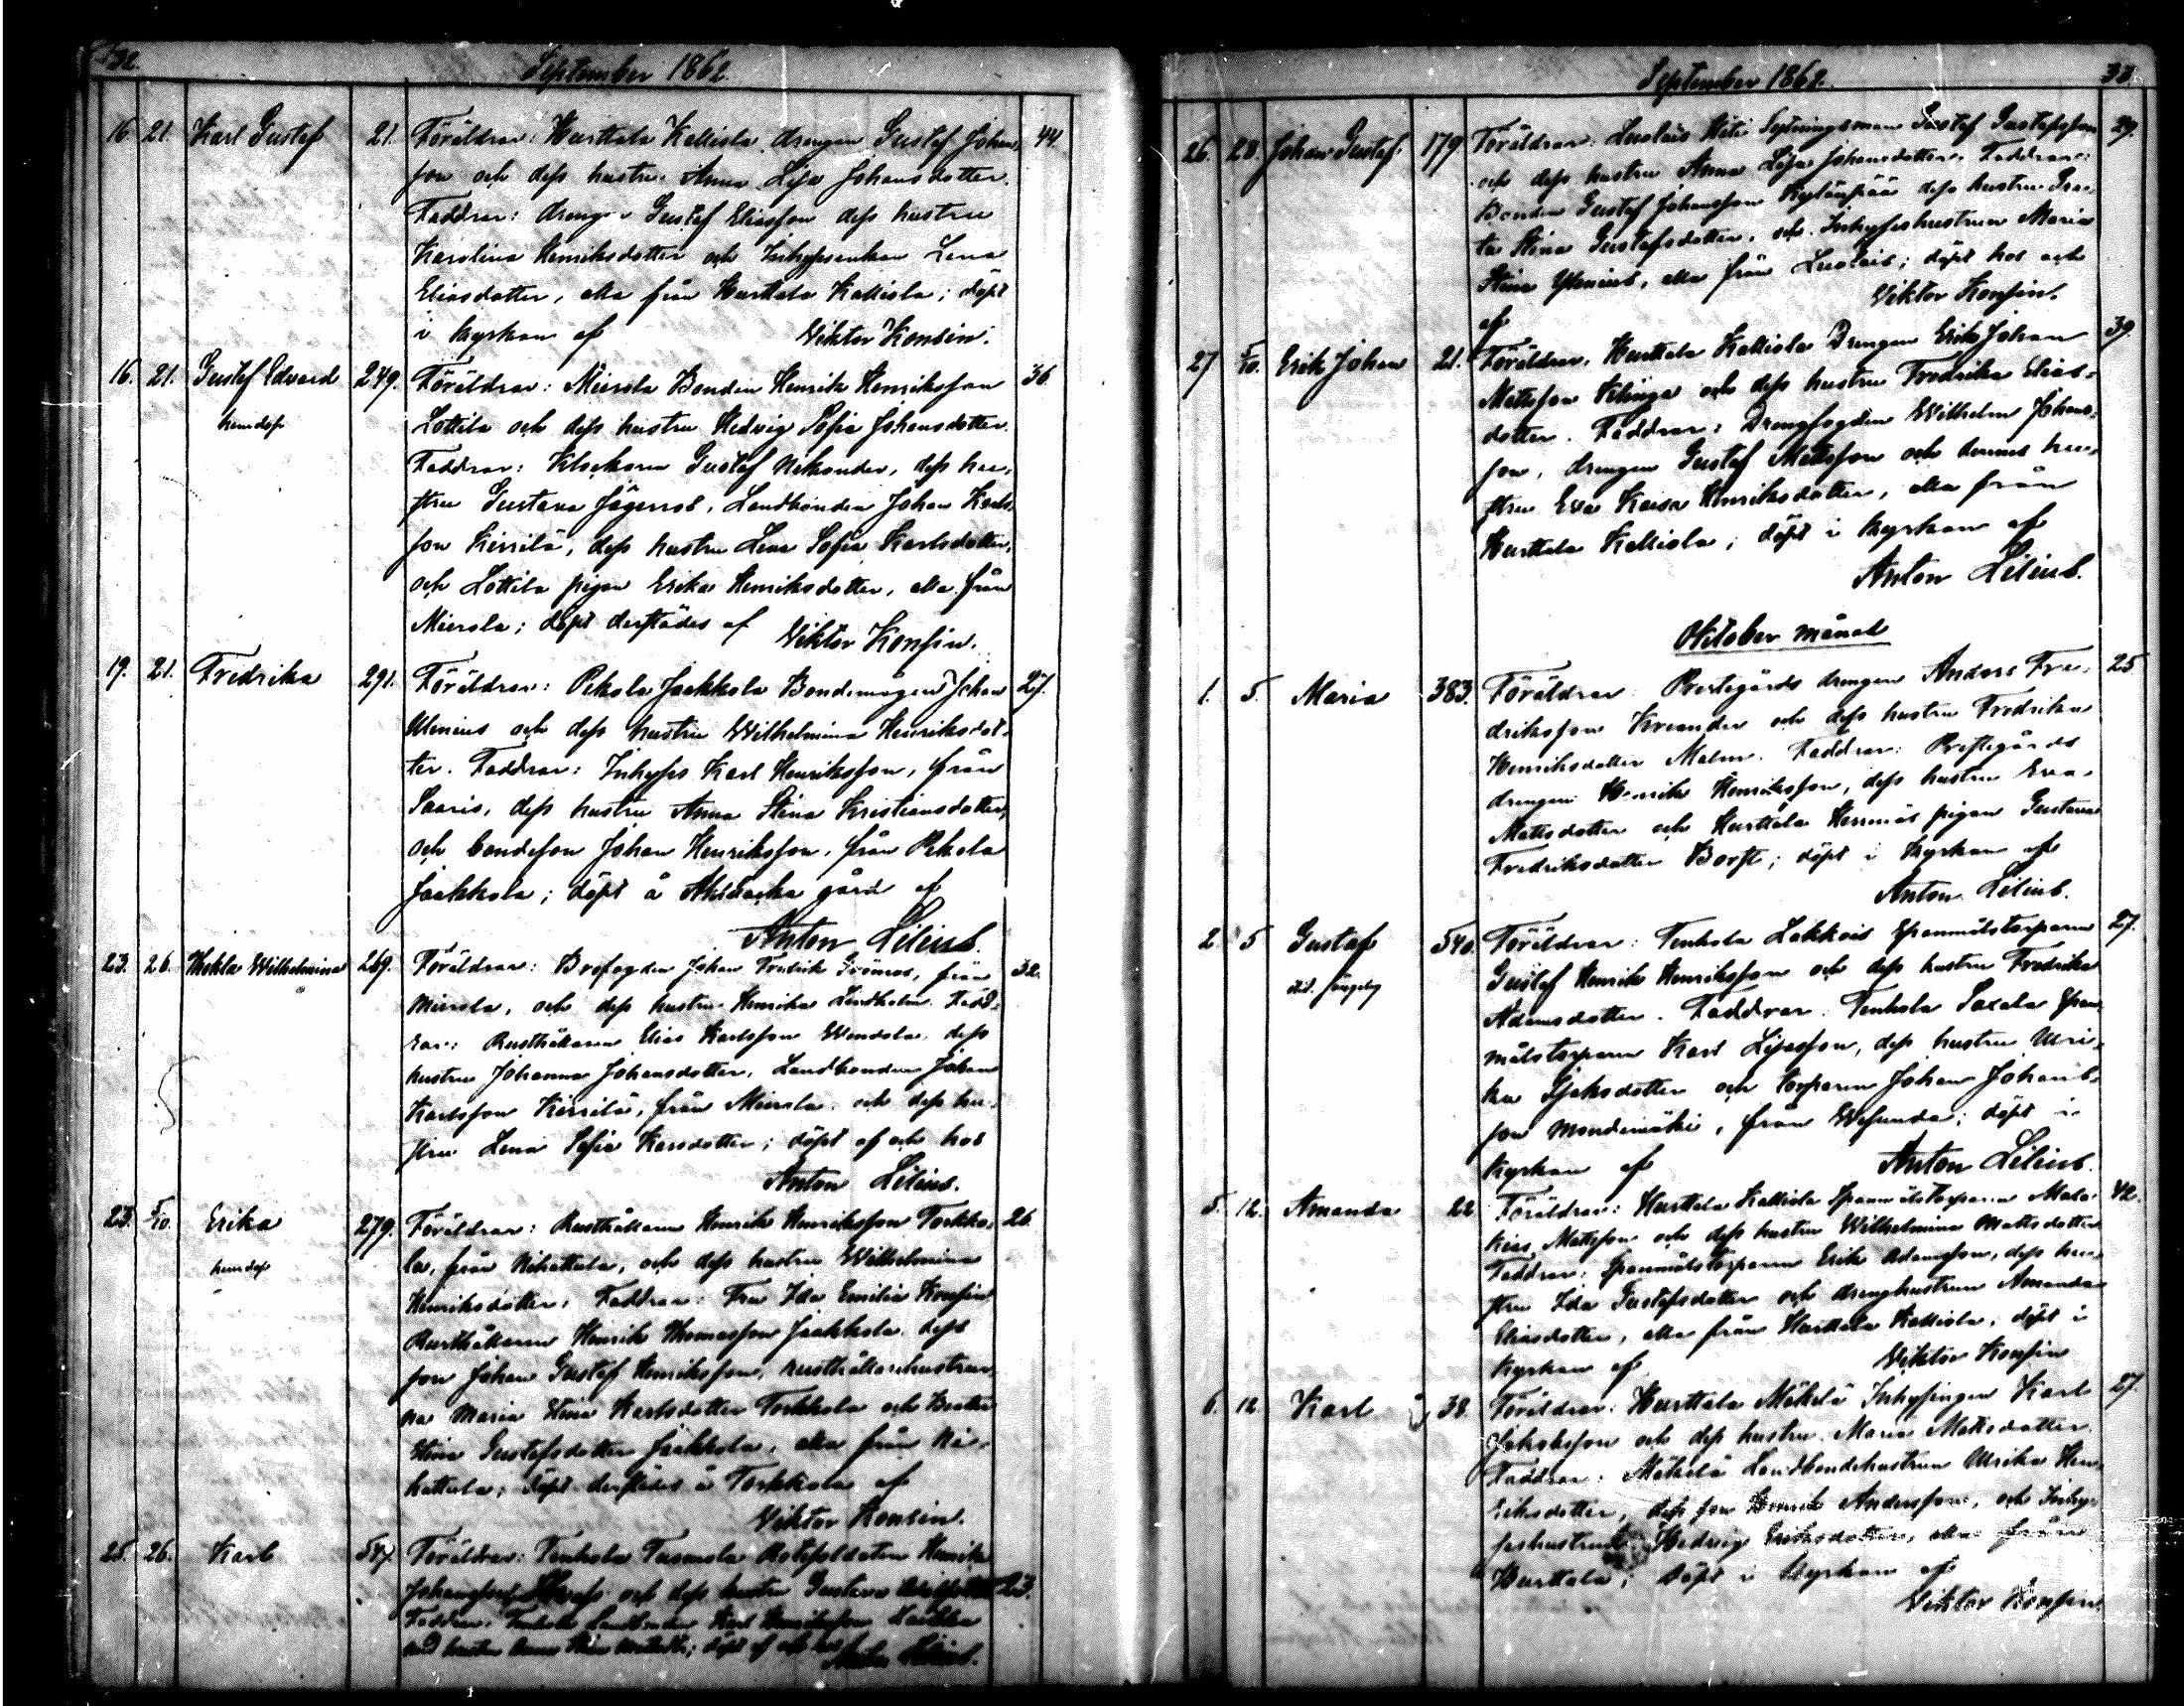 32.
September 1862.
16. 21. Karl Gustaf 21. Föräldrar: Hurttala Kalliola drengen Gustaf Johans- 44.
son och dess hustru Anna Lisa Johansdotter.
Faddrar: drengen Gustaf Eliasson dess hustru
Karolina Henriksdotter och Inhysesenkan Lena
Eliasdotter, alla från Hurttala Kalliola; döpt
i kyrkan af Viktor Konsin.
16. 21. Gustaf Edvard 249. Föräldrar: Miemola Bonden Henrik Henriksson 36.
hemdop Lottila och dess hustru Hedvig Sofia Johansdotter.
Faddrar: Klockaren Gustaf dess hu-
stru Gustava Jägerroos, Landbonden Johan Karls-
son Kirrilä, dess hustru Lena Sofia Karlsdotter,
och Lottila pigan Erika Henriksdotter, alla från
Miemola; döpt derstädes af Viktor Konsin.
19. 21. Fredrika 291. Föräldrar: Pekola Jaakkola Bondemågen Johan 27.
Ulenius och dess hustru Wilhelmina Henriksdot-
ter. Faddrar: Inhyses Karl Henriksson, från
Saaris, dess hustru Anna Stina Kristiansdotter,
och bondeson Johan Henriksson, från Pekola
Jaakkola; döpt å gård af
Anton Lilius.
23. 26. Thekla Wilhelmina 269. Föräldrar: Brofogden Johan Fredrik Grönroos, från 32.
Miemola, och dess hustru Henrika Lindholm. Fadd-
rar: Rusthållaren Elias Karlsson Wendola, dess
hustru Johanna Johansdotter, Landbonden Johan
Karlsson Kirrilä, från Miemola, och dess hu-
stru Lena Sofia Karlsdotter; döpt af och hos
Anton Lilius.
23. 5/10. Erika 279. Föräldrar: Rusthållaren Henrik Henriksson Torkko- 26.
hemdop la, från Nihattula, och dess hustru Wilhelmina
Henriksdotter. Faddrar: Fru Ida Emilia Konsin
Rusthållaren Henrik Thomasson Jaakkola, dess
son Johan Gustaf Henriksson, rusthållarehustrur-
na Maria Stina Karlsdotter Torkkola och Beata
Stina Gustafsdotter Jaakkola, alla från Ni-
hattula; döpt derstädes å Torkkola af
Viktor Konsin.
25. 26. Karl 587. Föräldrar: Tenhola Rotesoldaten Henrik
Johansson och dess hustru Gustava 23.
Faddrar: Tenhola Landbonden Karl Henriksson
med hustru Anna Stina; döpt af och hos Anton Lilius.
33.
September 1862.
26. 28. Johan Gustaf 179 Föräldrar: Luolais Mäki Gustaf Gustafsson 29.
och dess hustru Anna Lisa Johansdotter. Faddrar:
Bonden Gustaf Johansson Kylänpää dess hustru Gre-
ta Stina Gustafsdotter, och Inhyseshustrun Maria
Stina Ylenius, alla från Luolais; döpt hos och
af Viktor Konsin.
27 5/10. Erik Johan 21. Föräldrar: Hurttala Kalliola Drengen Erik Johan 39.
Mattsson Klinga och dess hustru Fredrika Elias-
dotter. Faddrar: Drengfogden Wilhelm Johans-
son, drengen Gustaf Mattsson och dennes hu-
stru Eva Kaisa Henriksdotter, alla från
Hurttala Kalliola; döpt i kyrkan af
Anton Lilius.
Oktober månad
1. 5. Maria 383. Föräldrar: Prestegårds drengen Anders Fre- 25
driksson Kreander och dess hustru Fredrika
Henriksdotter Malm. Faddrar: Prestegårds
drengen Henrik Henriksson, dess hustru Eva
Mattsdotter och Hurttala pigan Gustava
Fredriksdotter Borg; döpt i kyrkan af
Anton Lilius.
2. 5 Gustaf 540. Föräldrar: Tenhola Lakkois Spanmålstorparen 27.
Gustaf Henrik Henriksson och dess hustru Fredrika
Adamsdotter. Faddrar: Tenhola Saxala Span-
målstorparen Karl Lisasson, dess hustru Ulri-
ka Isaksdotter och torparen Johan Johans-
son Mondinmäki, från Wesunda; döpt i
kyrkan af Anton Lilius.
5. 12. Amanda 22 Föräldrar: Hurttala Kalliola Spanmålstorparen Mat- 42.
tias Mattsson och dess hustru Wilhelmina Mattsdotter
Faddrar: Spanmålstorparen Erik Adamsson, dess hu-
stru Ida Gustafsdotter och drenghustrun Amanda
Eliasdotter, alla från Hurttala Kalliola; döpt i
kyrkan af Viktor Konsin
6. 12 Karl 38. Föräldrar: Hurttala Mäkelä Inhysingen Karl 27.
Jakobsson och dess hustru Maria Mattsdotter.
Faddrar: Mäkelä Landbondehustrun Ulrika Hen-
riksdotter, dess son Henrik Andersson, och Inhy-
seshustrun Hedvig Eriksdotter, alla från
Hurttala; döpt i kyrkan af
Viktor Konsin.